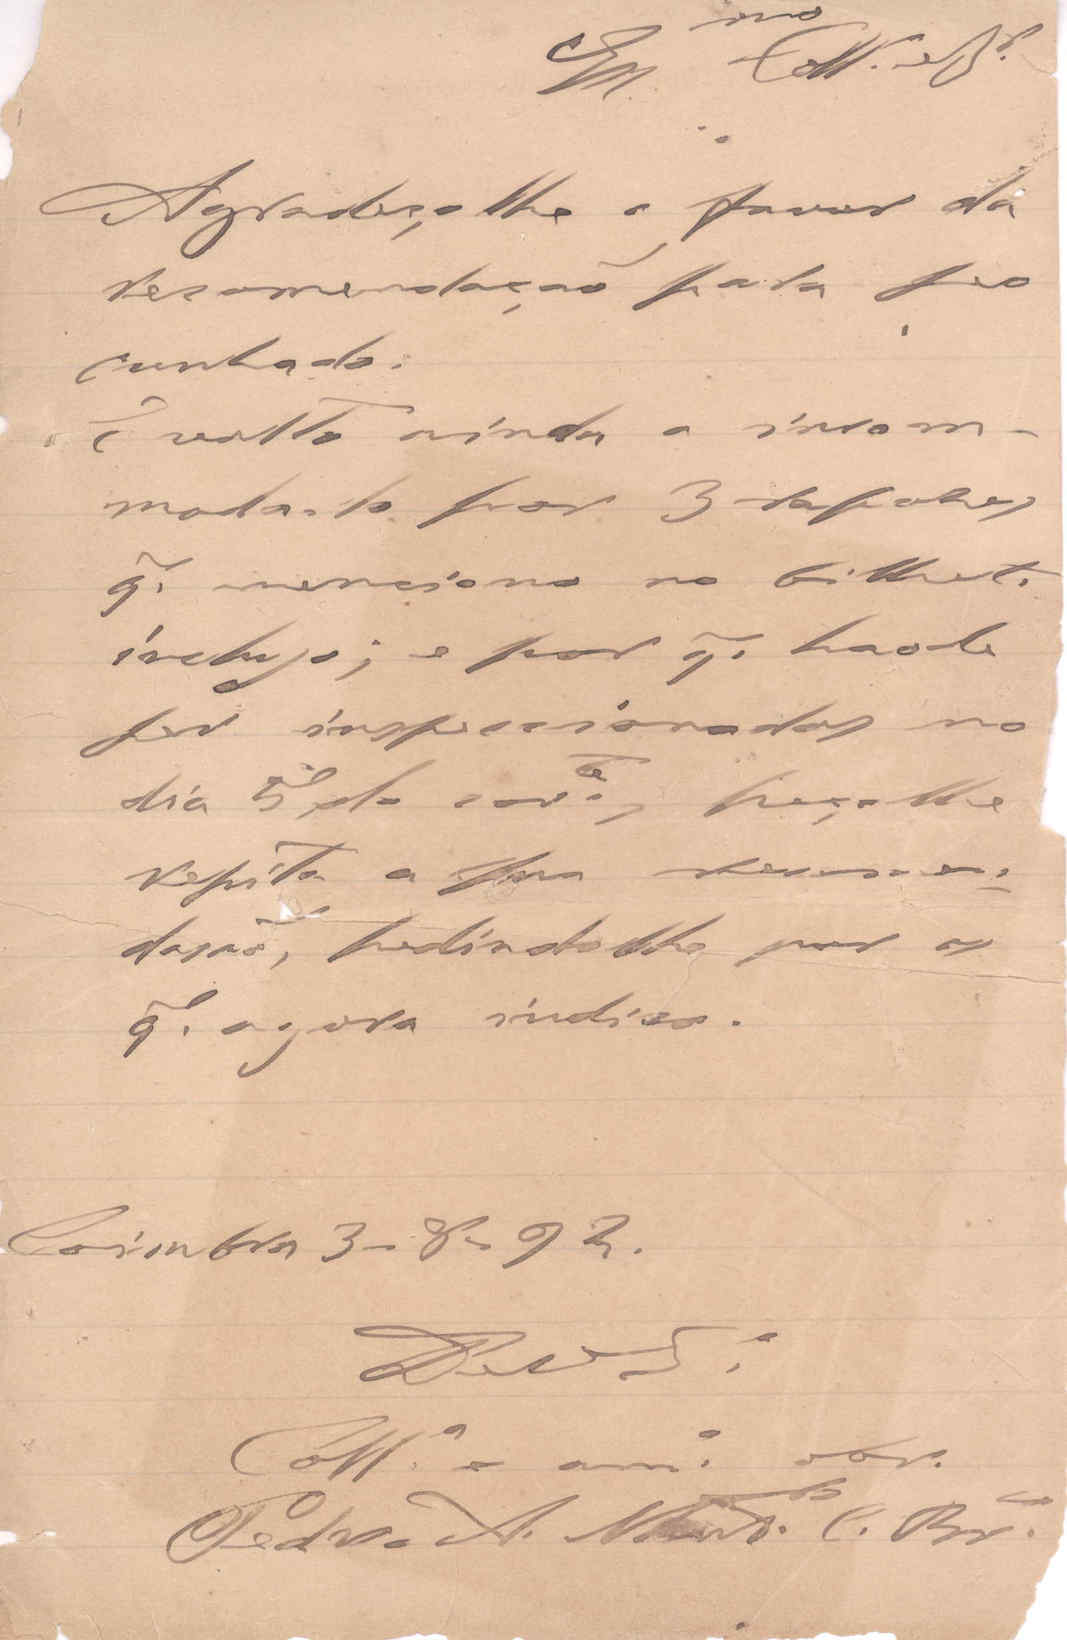 Ex.mo Coll. e
Agradeço lhe o favor da
recomendação para seo
cunhado.
E volto ainda a incom-
moda-lo por 3 rapazes
q. menciono no bilhet.
incluso; e por q. haode
ser inspeccionados no
dia 5 do corr.te, peço lhe
repita a sua recomen-
dação, pedindo lhe por os
q. agora indico.
Coimbra 3-8-92.
Coll.a e am.o obr.
Pedro A. C.